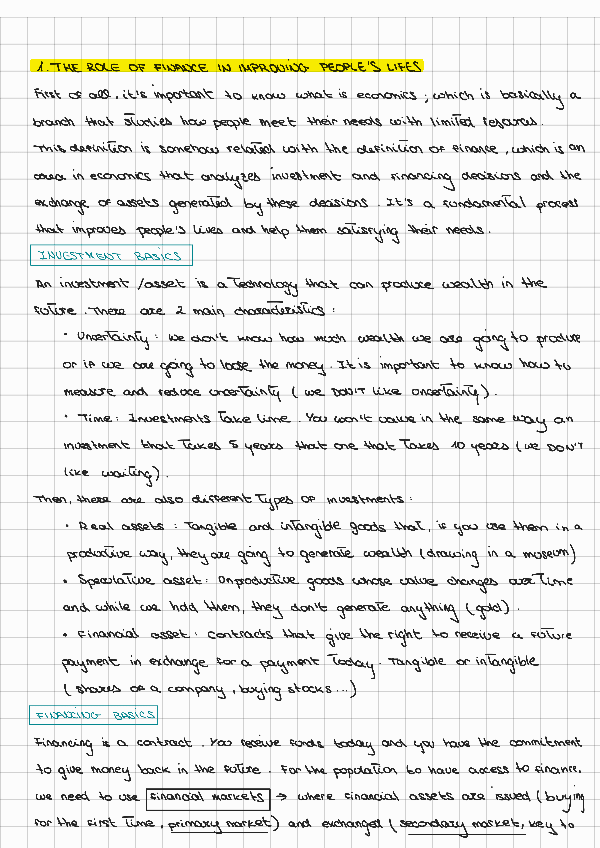 1. THE ROLE OF FINANCE IN IMPROVING PEOPLE'S LIFES
First of all, it's important to know what is economics; which is basically a
branch that studies how people meet their needs with limited resources.
This definition is somehow related with the definition of finance, which is an
area in economics that analyzes investment and financing decisions and the
exchange of assets generated by these decisions. It's a fundamental process
that improves people's lives and help them satisfying their needs.
INVESTMENT BASICS
An investment /asset is a technology that can produce wealth in the
future. There are 2 main characteristics:
· Uncertainty: we don't know how much wealth we are going to produce
or if we are going to loose the money. It is important to know how to
measure and reduce uncertainty (we DON'T like uncertainty).
· Time: Investments take time. You won't value in the same way an
investment that takes 5 years that one that takes 10 years (we DON'T
like waiting).
Then, there are also different types of investments:
· Real assets: Tangible and intangible goods that, if you use them in a
productive way, they are going to generate wealth (drawing in a museum)
· Speculative asset: Unproductive goods whose value changes over time
and while we hold them, they don't generate anything (gold).
· Financial asset: Contracts that give the right to receive a future
payment in exchange for a payment today. Tangible or intangible
(shares of a company, buying stocks...)
FINANCING BASICS
Financing is a contract. You receive funds today and you have the commitment
to give money back in the future. For the population to have access to finance,
we need to use financial markets → where financial assets are issued (buying
for the first time, primary market) and exchanged (secondary market, key to